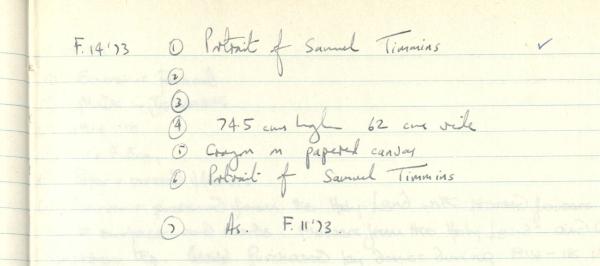 F.14'73 ① Portrait of Samuel Timmins ✓
②
③
④ 74.5 cms high 62 cms wide
⑤ Crayon on papered canvas
⑥ Portrait of Samuel Timmins
⑦ As. F.11'73.